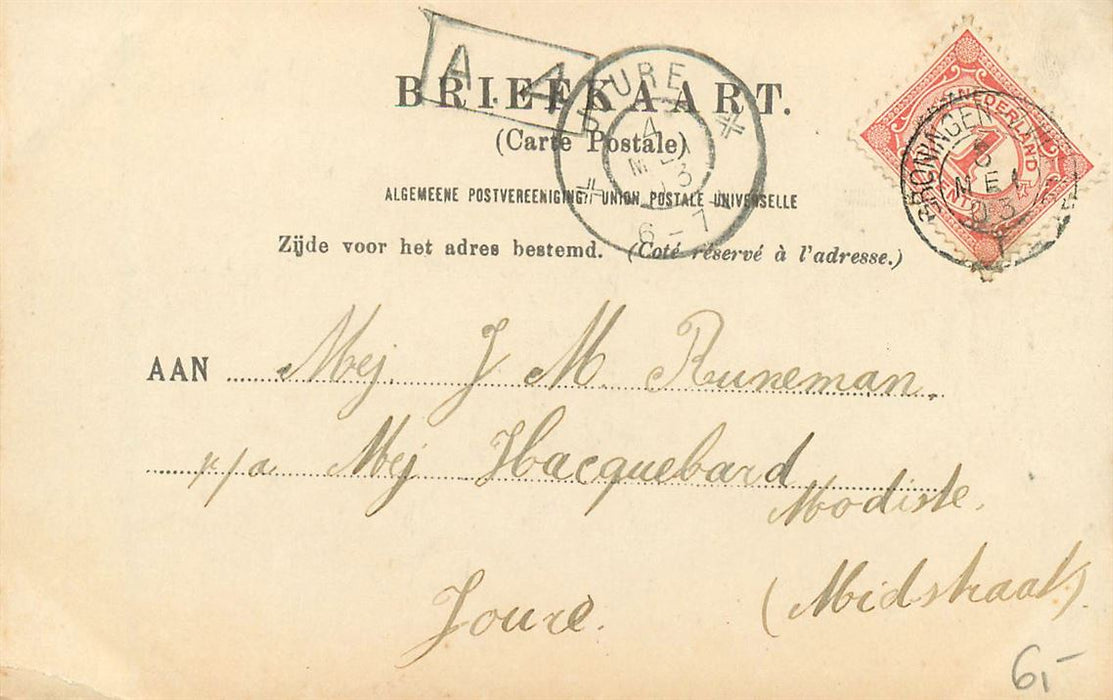 A. 4
BRIEFKAART.
(Carte Postale)
ALGEMEENE POSTVEREENIGING / UNION POSTALE UNIVERSELLE
Zijde voor het adres bestemd. (Coté réservé à l'adresse.)
JOURE
4
MEI
03
6-7
NEDERLAND
1
CENT
GRONINGEN
MEI
03
AAN Mej. J M Runeman.
p/a Mej Hacquebard
Modiste.
Joure. (Midstraat)
6,-